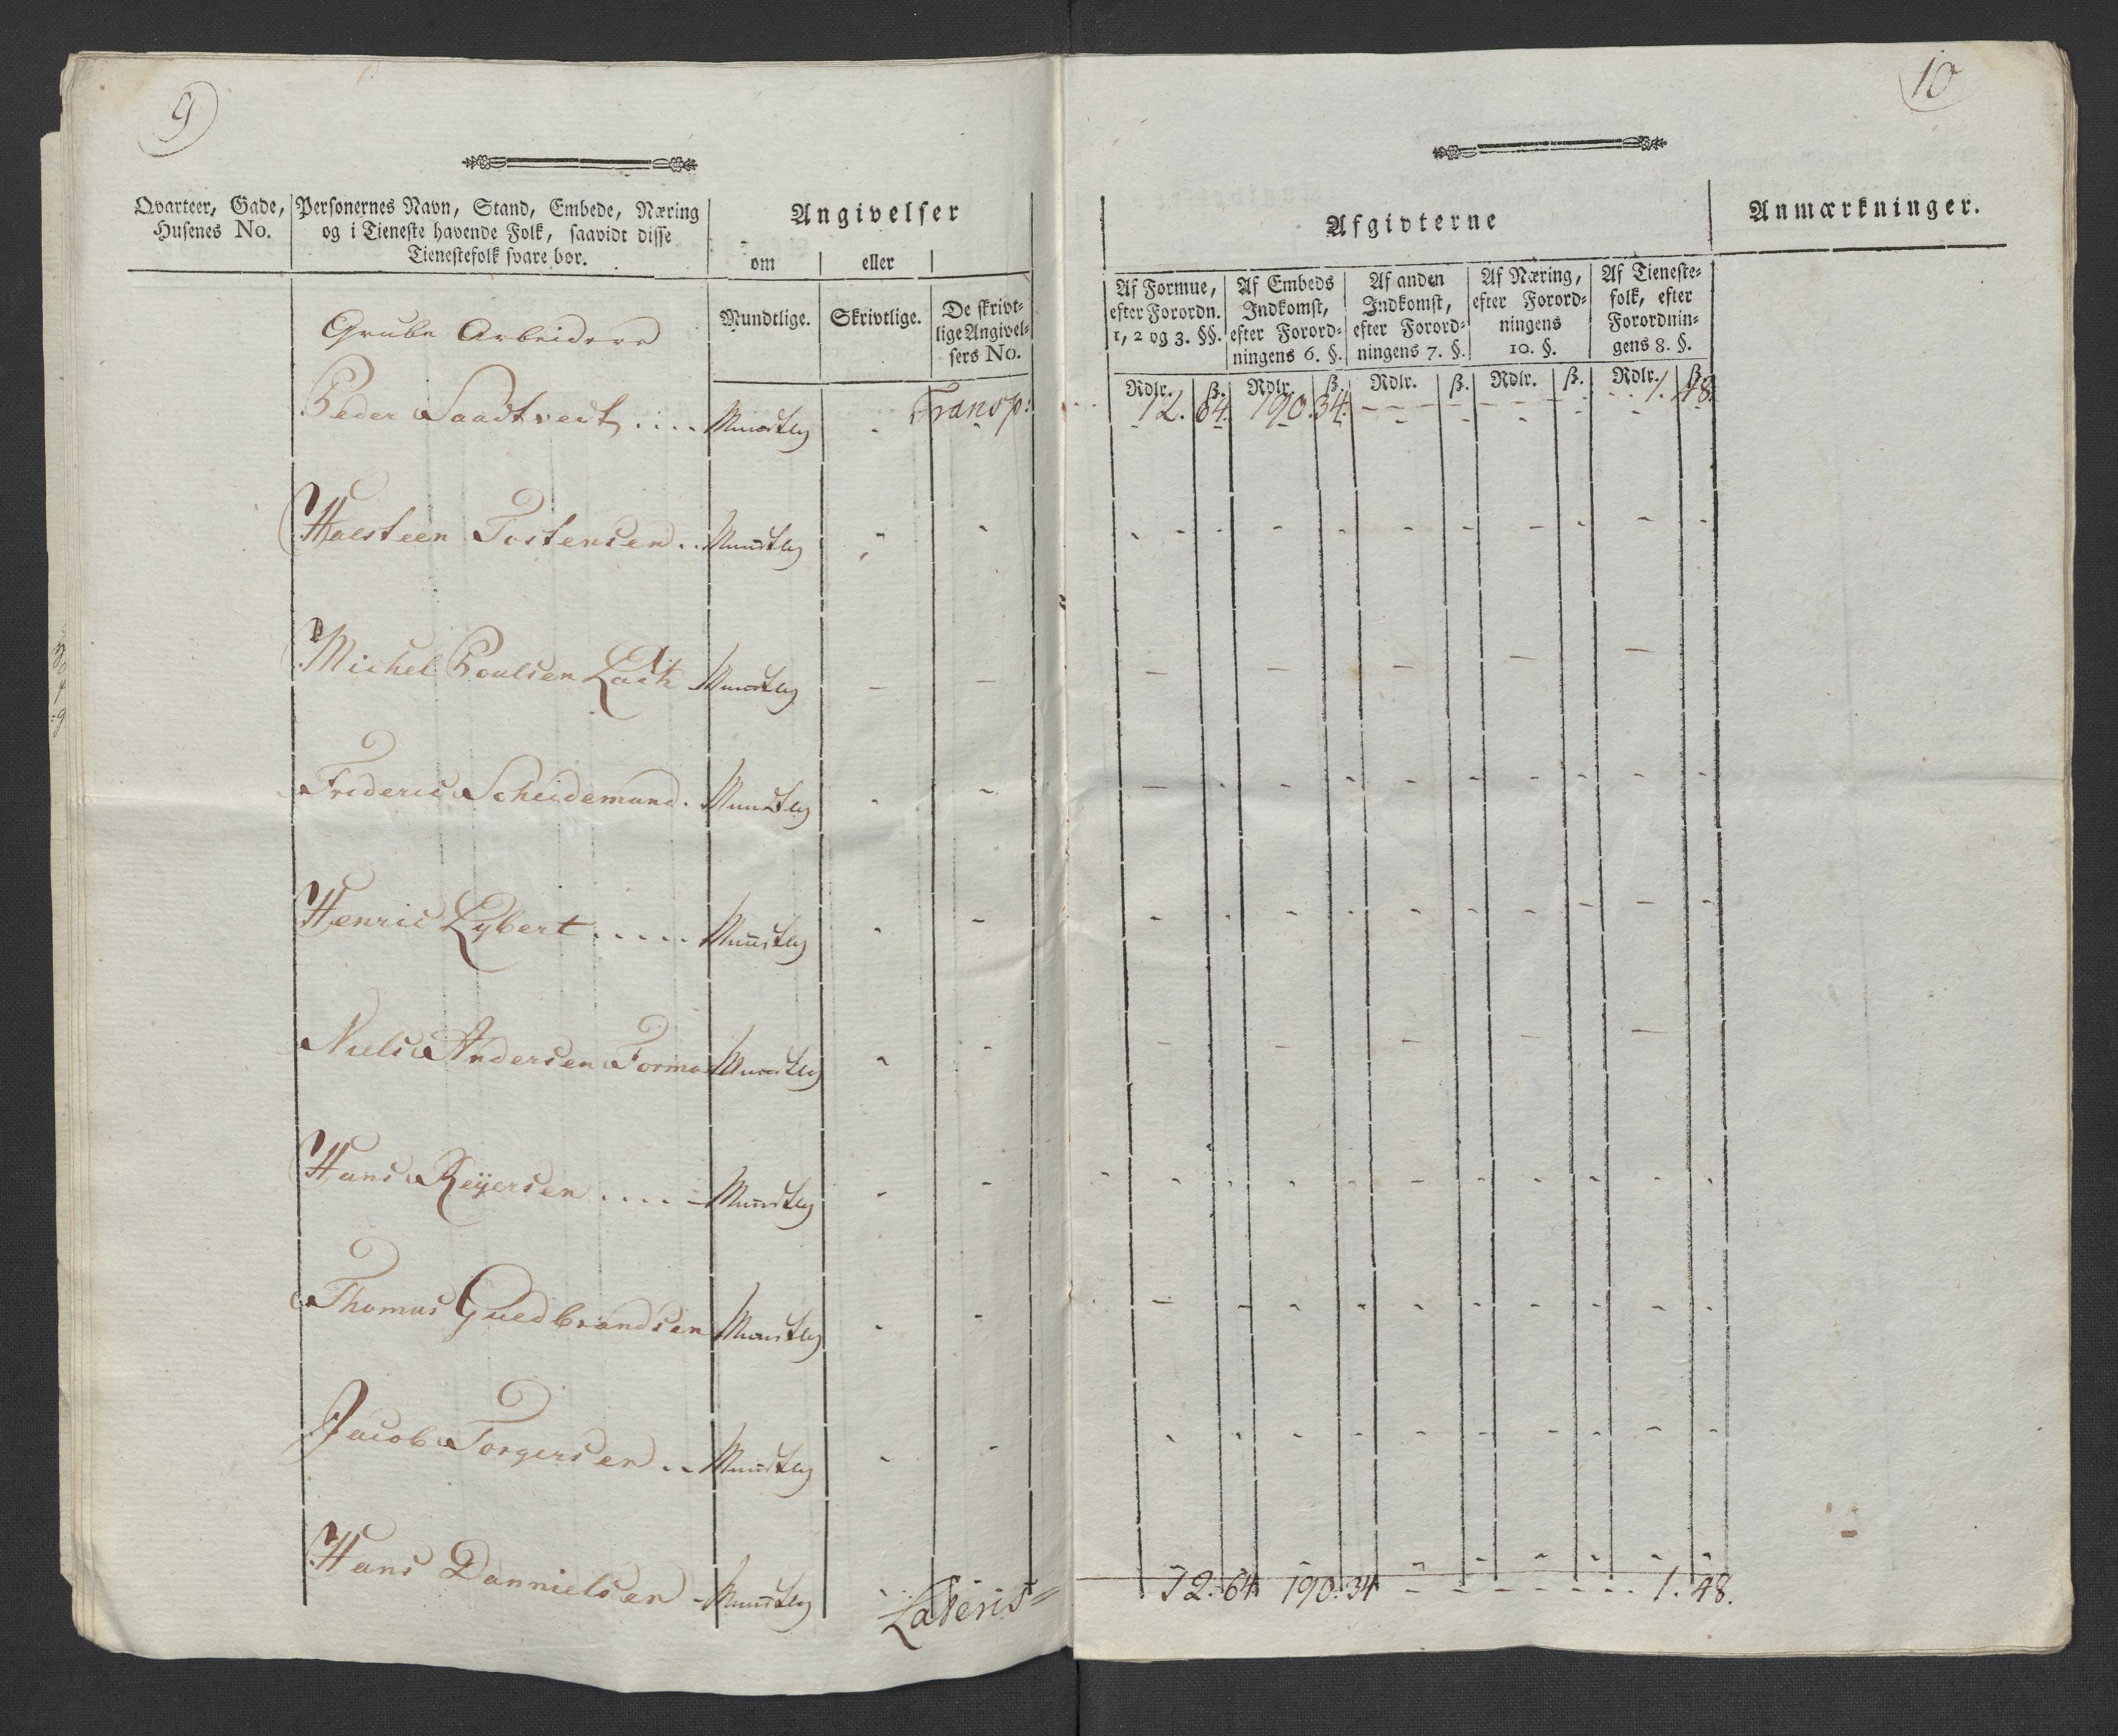 9
Qvarteer, Gade, Husenes No.
Personernes Navn, Stand, Embede, Næring
og i Tieneste havende Folk, saavidt disse
Tienestefolk svare bør.
Angivelser
om eller
Mundtlige. Skrivtlige. De skrivt-
lige Angivel-
sers No.
Grube Arbeidere
Transp:
Peder Saadtvedt ..... Mundtlig - -
Halsteen Tostensen .. Mundtlig - -
Michel Poulsen Mundtlig - -
Frideric Scheidemand. Mundtlig - -
Henric Lybert ..... Mundtlig - -
Niels Andersen Formo Mundtlig - -
Hans Reÿersen .... Mundtlig - -
Thomas Guedbrandsen Mundtlig - -
Jacob Torgersen .. Mundtlig - -
Hans Dannielsen - Mundtlig - -
Lateris =
10
Afgivterne
Anmærkninger.
Af Formue,
efter Forordn.
1, 2 og 3. §§.
Af Embeds
Indkomst,
efter Forord-
ningens 6. §.
Af anden
Indkomst,
efter Forord-
ningens 7. §.
Af Næring,
efter Forord-
ningens
10. §.
Af Tieneste-
folk, efter
Forordnin-
gens 8. §.
Rdlr. ß. Rdlr. ß. Rdlr. ß. Rdlr. ß. Rdlr. ß.
12. 64. 190. 34. - - - - 1. 48.
12. 64. 190. 34 - - - - 1. 48.